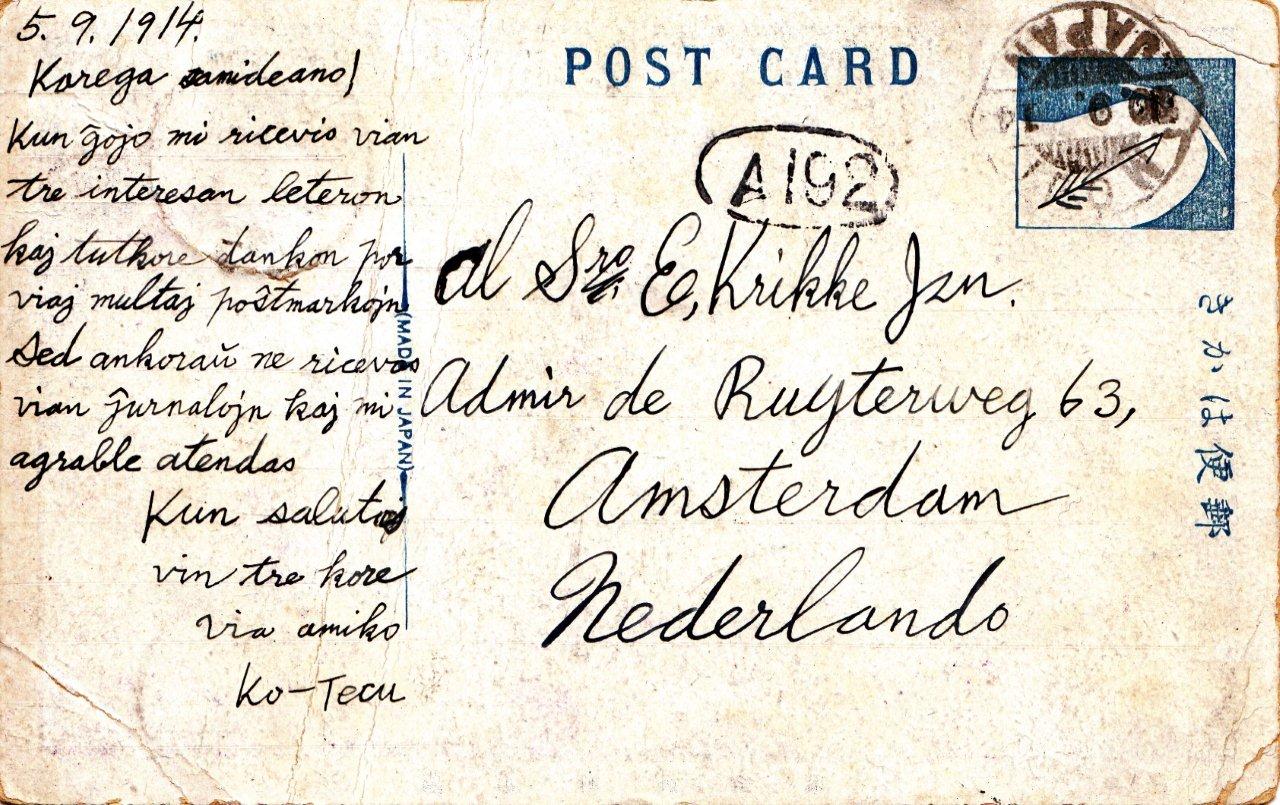 5. 9. 1914.
Korega samideano!
Kun ĝojo mi ricevis vian
tre interesan leteron
kaj tutkore dankon por
viaj multaj poŝtmarkojn
Sed ankoraŭ ne ricevas
vian ĵurnalojn kaj mi
agrable atendas
Kun salutoj
vin tre kore
via amiko
Ko-Tecu
(MADE IN JAPAN)
POST CARD
JAPAN
A192
al Sro. E, Krikke Jzn.
Admir de Ruyterweg 63,
Amsterdam
Nederlando
郵便はかき